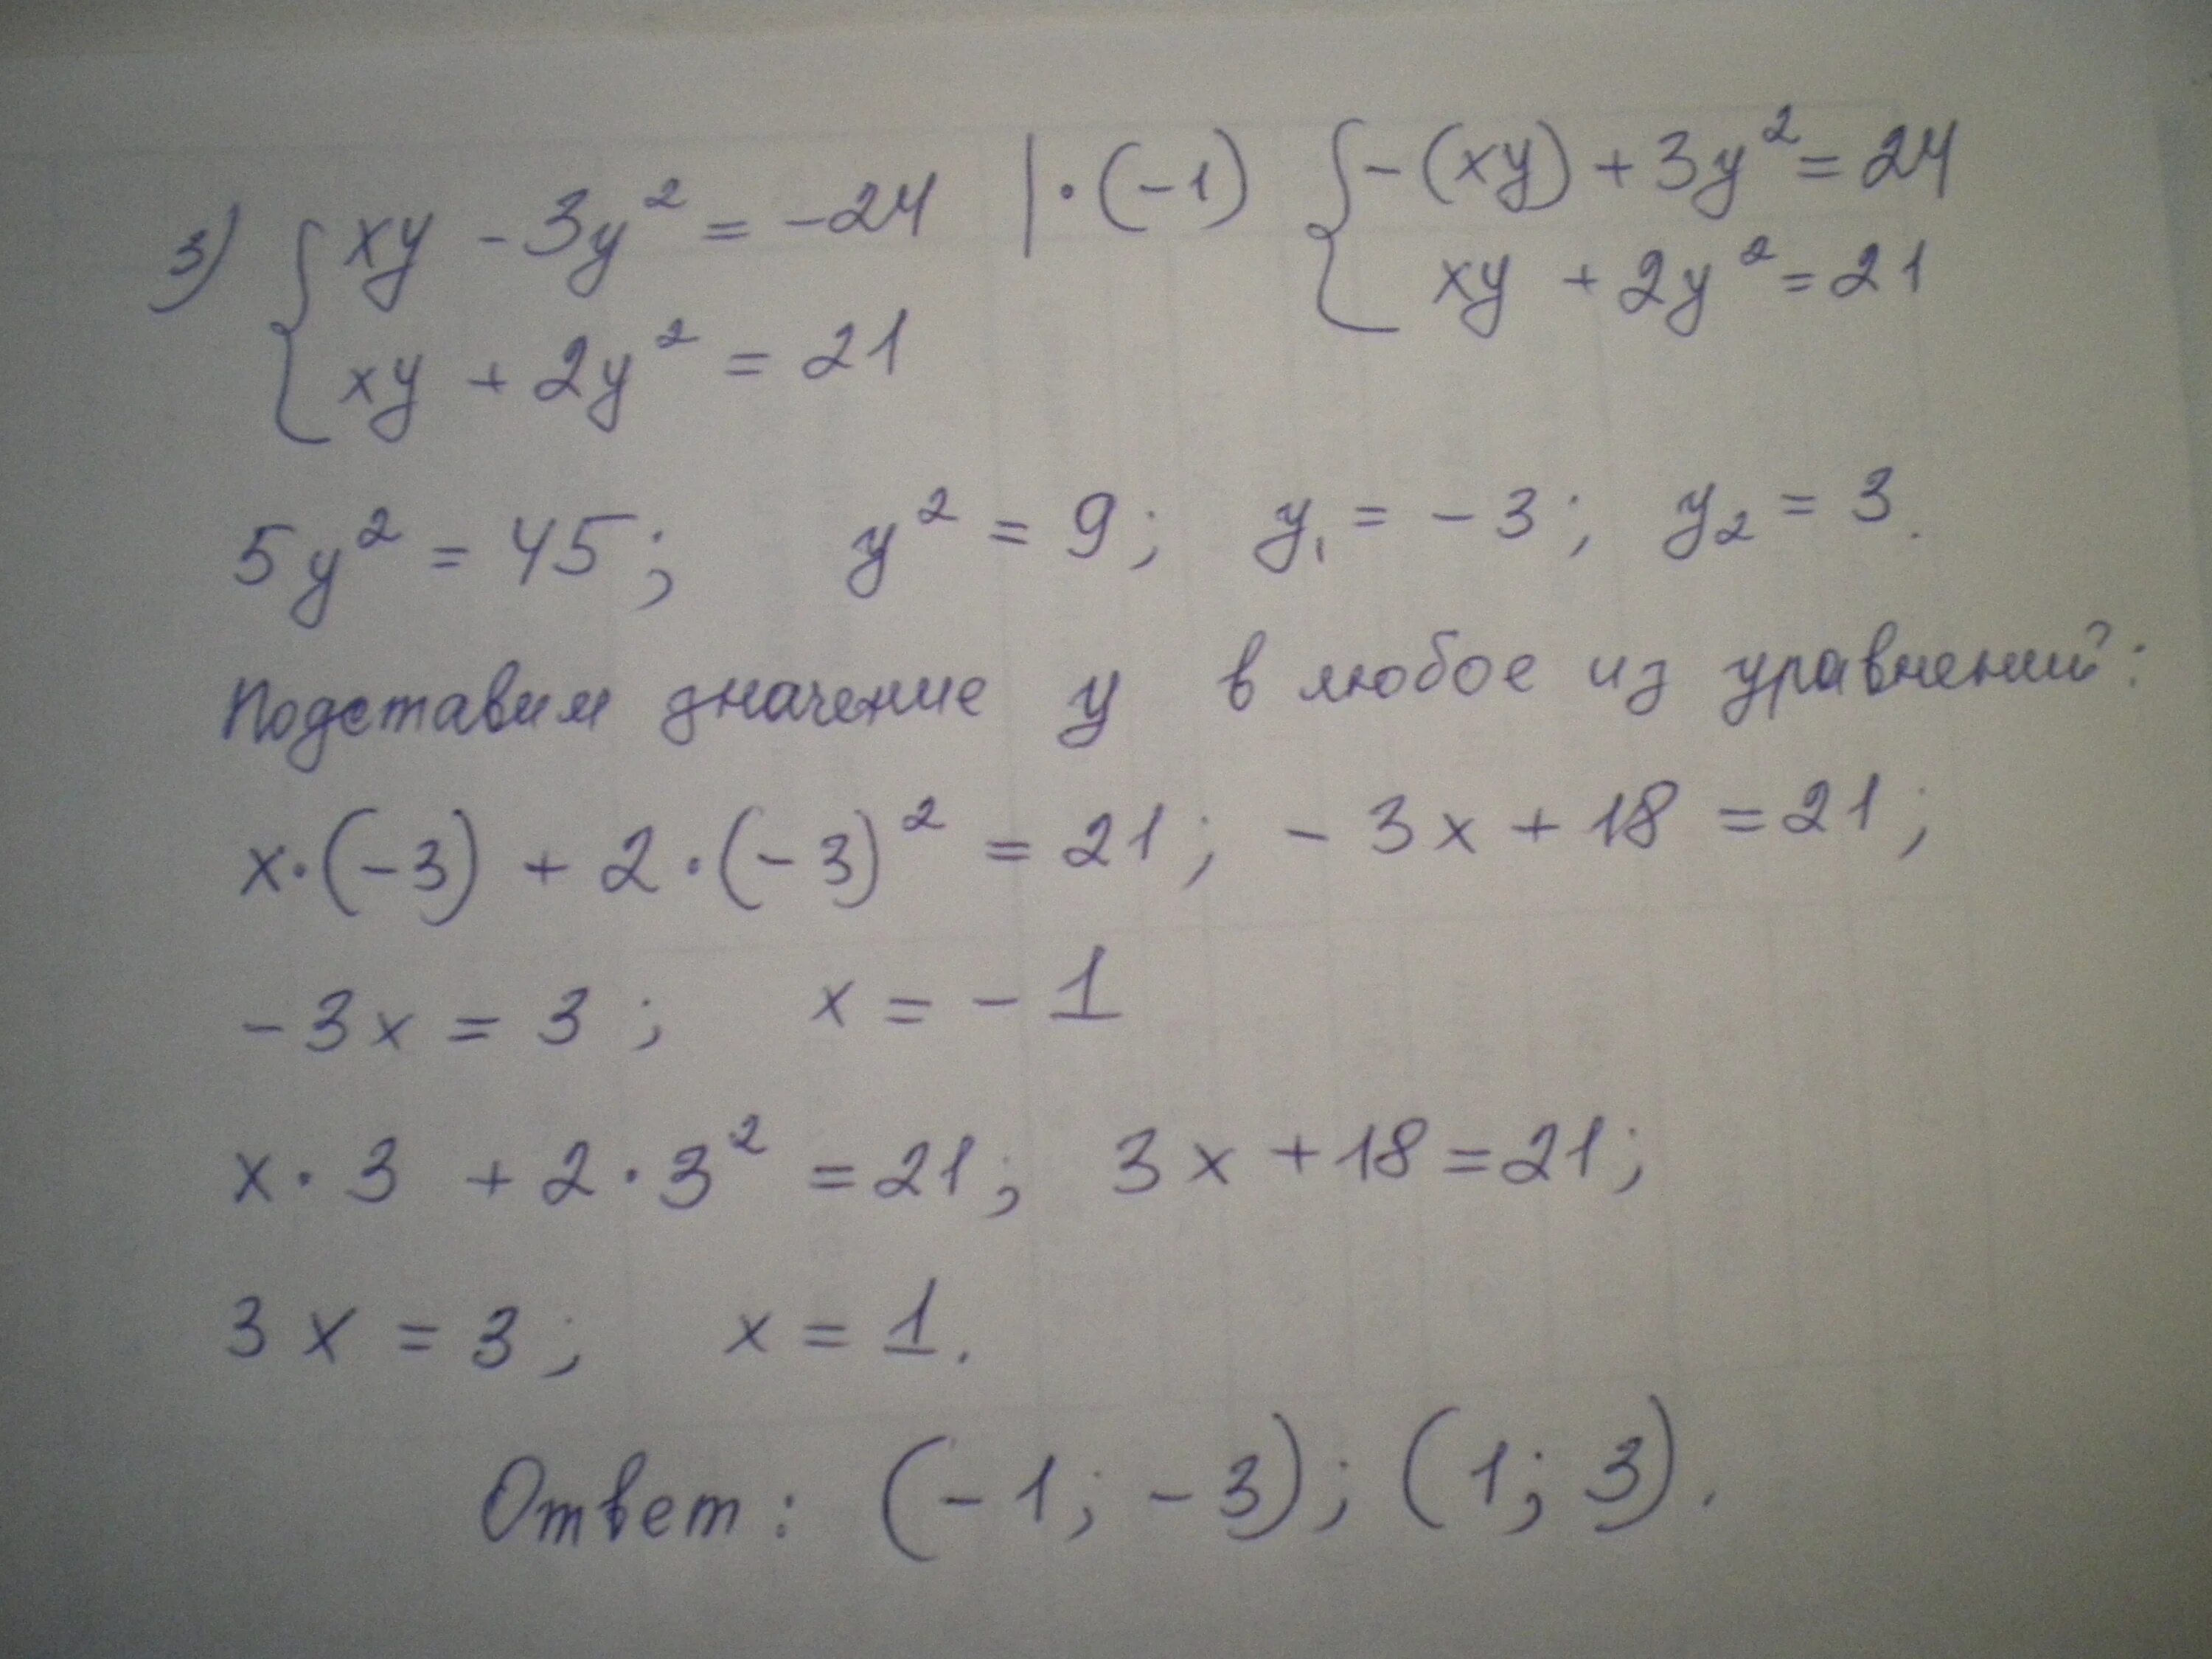 3) { xy - 3y² = -24 | · (-1) { -(xy) + 3y² = 24
xy + 2y² = 21 xy + 2y² = 21
5y² = 45; y² = 9; y₁ = -3; y₂ = 3.
Подставим значение y в любое из уравнений:
x·(-3) + 2·(-3)² = 21; -3x + 18 = 21;
-3x = 3; x = -1
x·3 + 2·3² = 21; 3x + 18 = 21;
3x = 3; x = 1.
Ответ: (-1; -3); (1; 3).